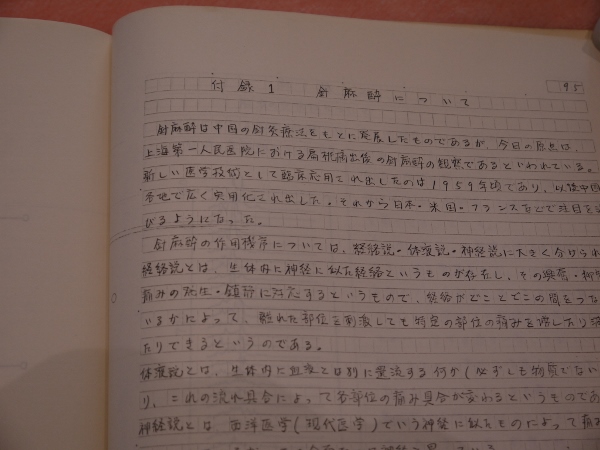 95
付録1 針麻酔について
針麻酔は中国の針灸療法をもとに発展したものであるが、今日の原点は、
上海第一人民医院における扁桃摘出後の針麻酔の観察であるといわれている。
新しい医学技術として臨床応用され出したのは1959年頃であり、以後中国
各地で広く実用化され出した。それから日本・米国・フランスなどで注目を
びるようになった。
針麻酔の作用機序については、経絡説・体液説・神経説に大きく分けられ
経絡説とは、生体内に神経に似た経絡というものが存在し、その興奮・抑
痛みの発生・鎮静に対応するというもので、経絡がどことどこの間をつな
いるかによって、離れた部位を刺激しても特定の部位の痛みを増したり減
たりできるというのである。
体液説とは、生体内に血液とは別に還流する何か(必ずしも物質でない
り、これの流れ具合によって各部位の痛み具合が変わるというものであ
神経説とは 西洋医学(現代医学)でいう神経に似たものによって痛み